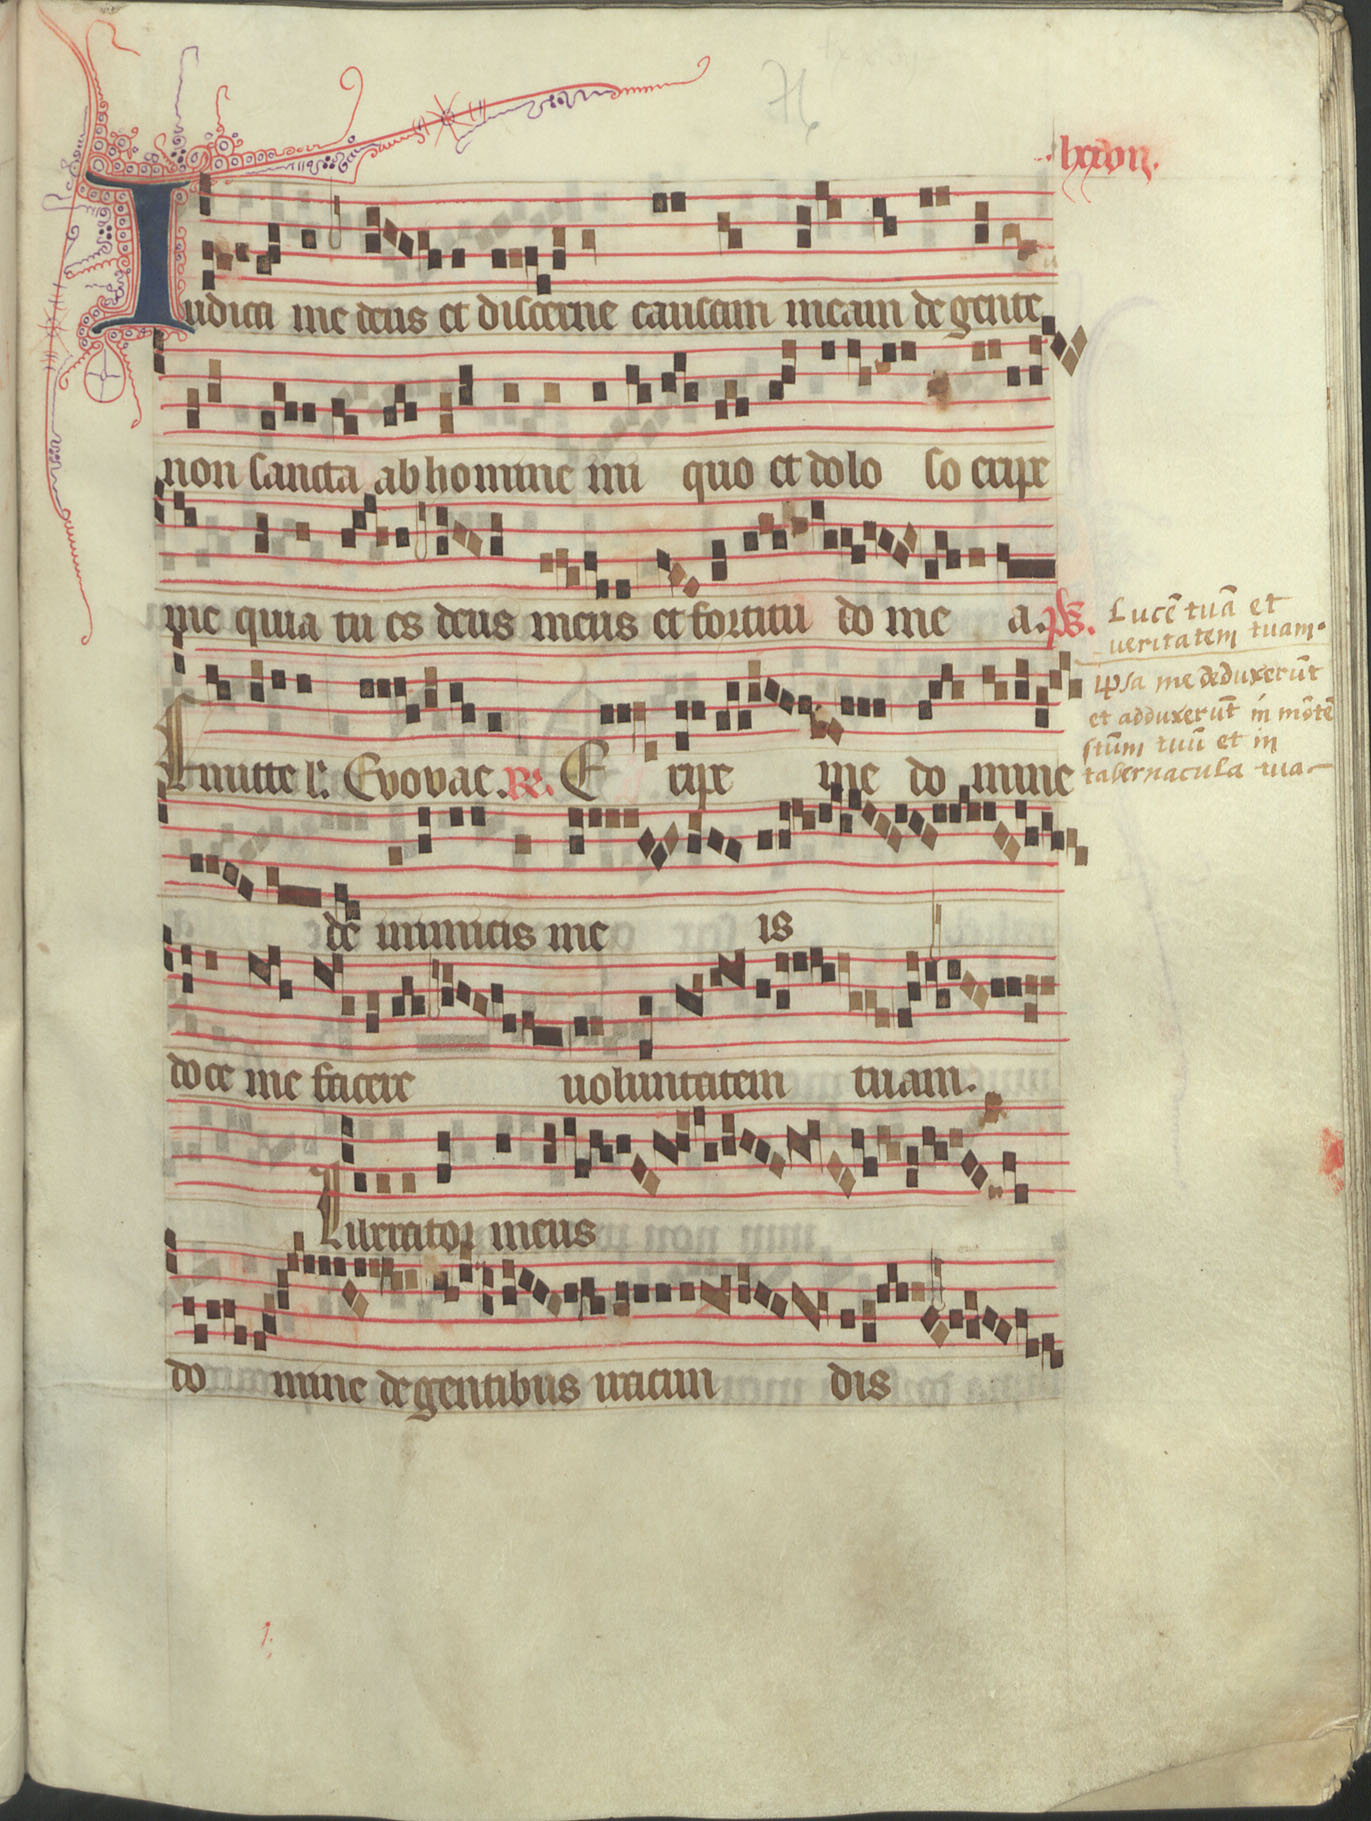 Iudica me deus et discerne causam meam de gente
non sancta ab homine ini quo et dolo so eripe
me quia tu es deus meus et fortitu do me a. ps.
Lucē tuā et
ueritatem tuam.
ipsa me deduxerūt
et adduxerūt in mōtē
stūm tuū et in
tabernacula tua
Emitte l. Evovae. R. E ripe me do mine
de inimicis me is
doce me facere uoluntatem tuam.
Liberator meus
do mine de gentibus iracun dis